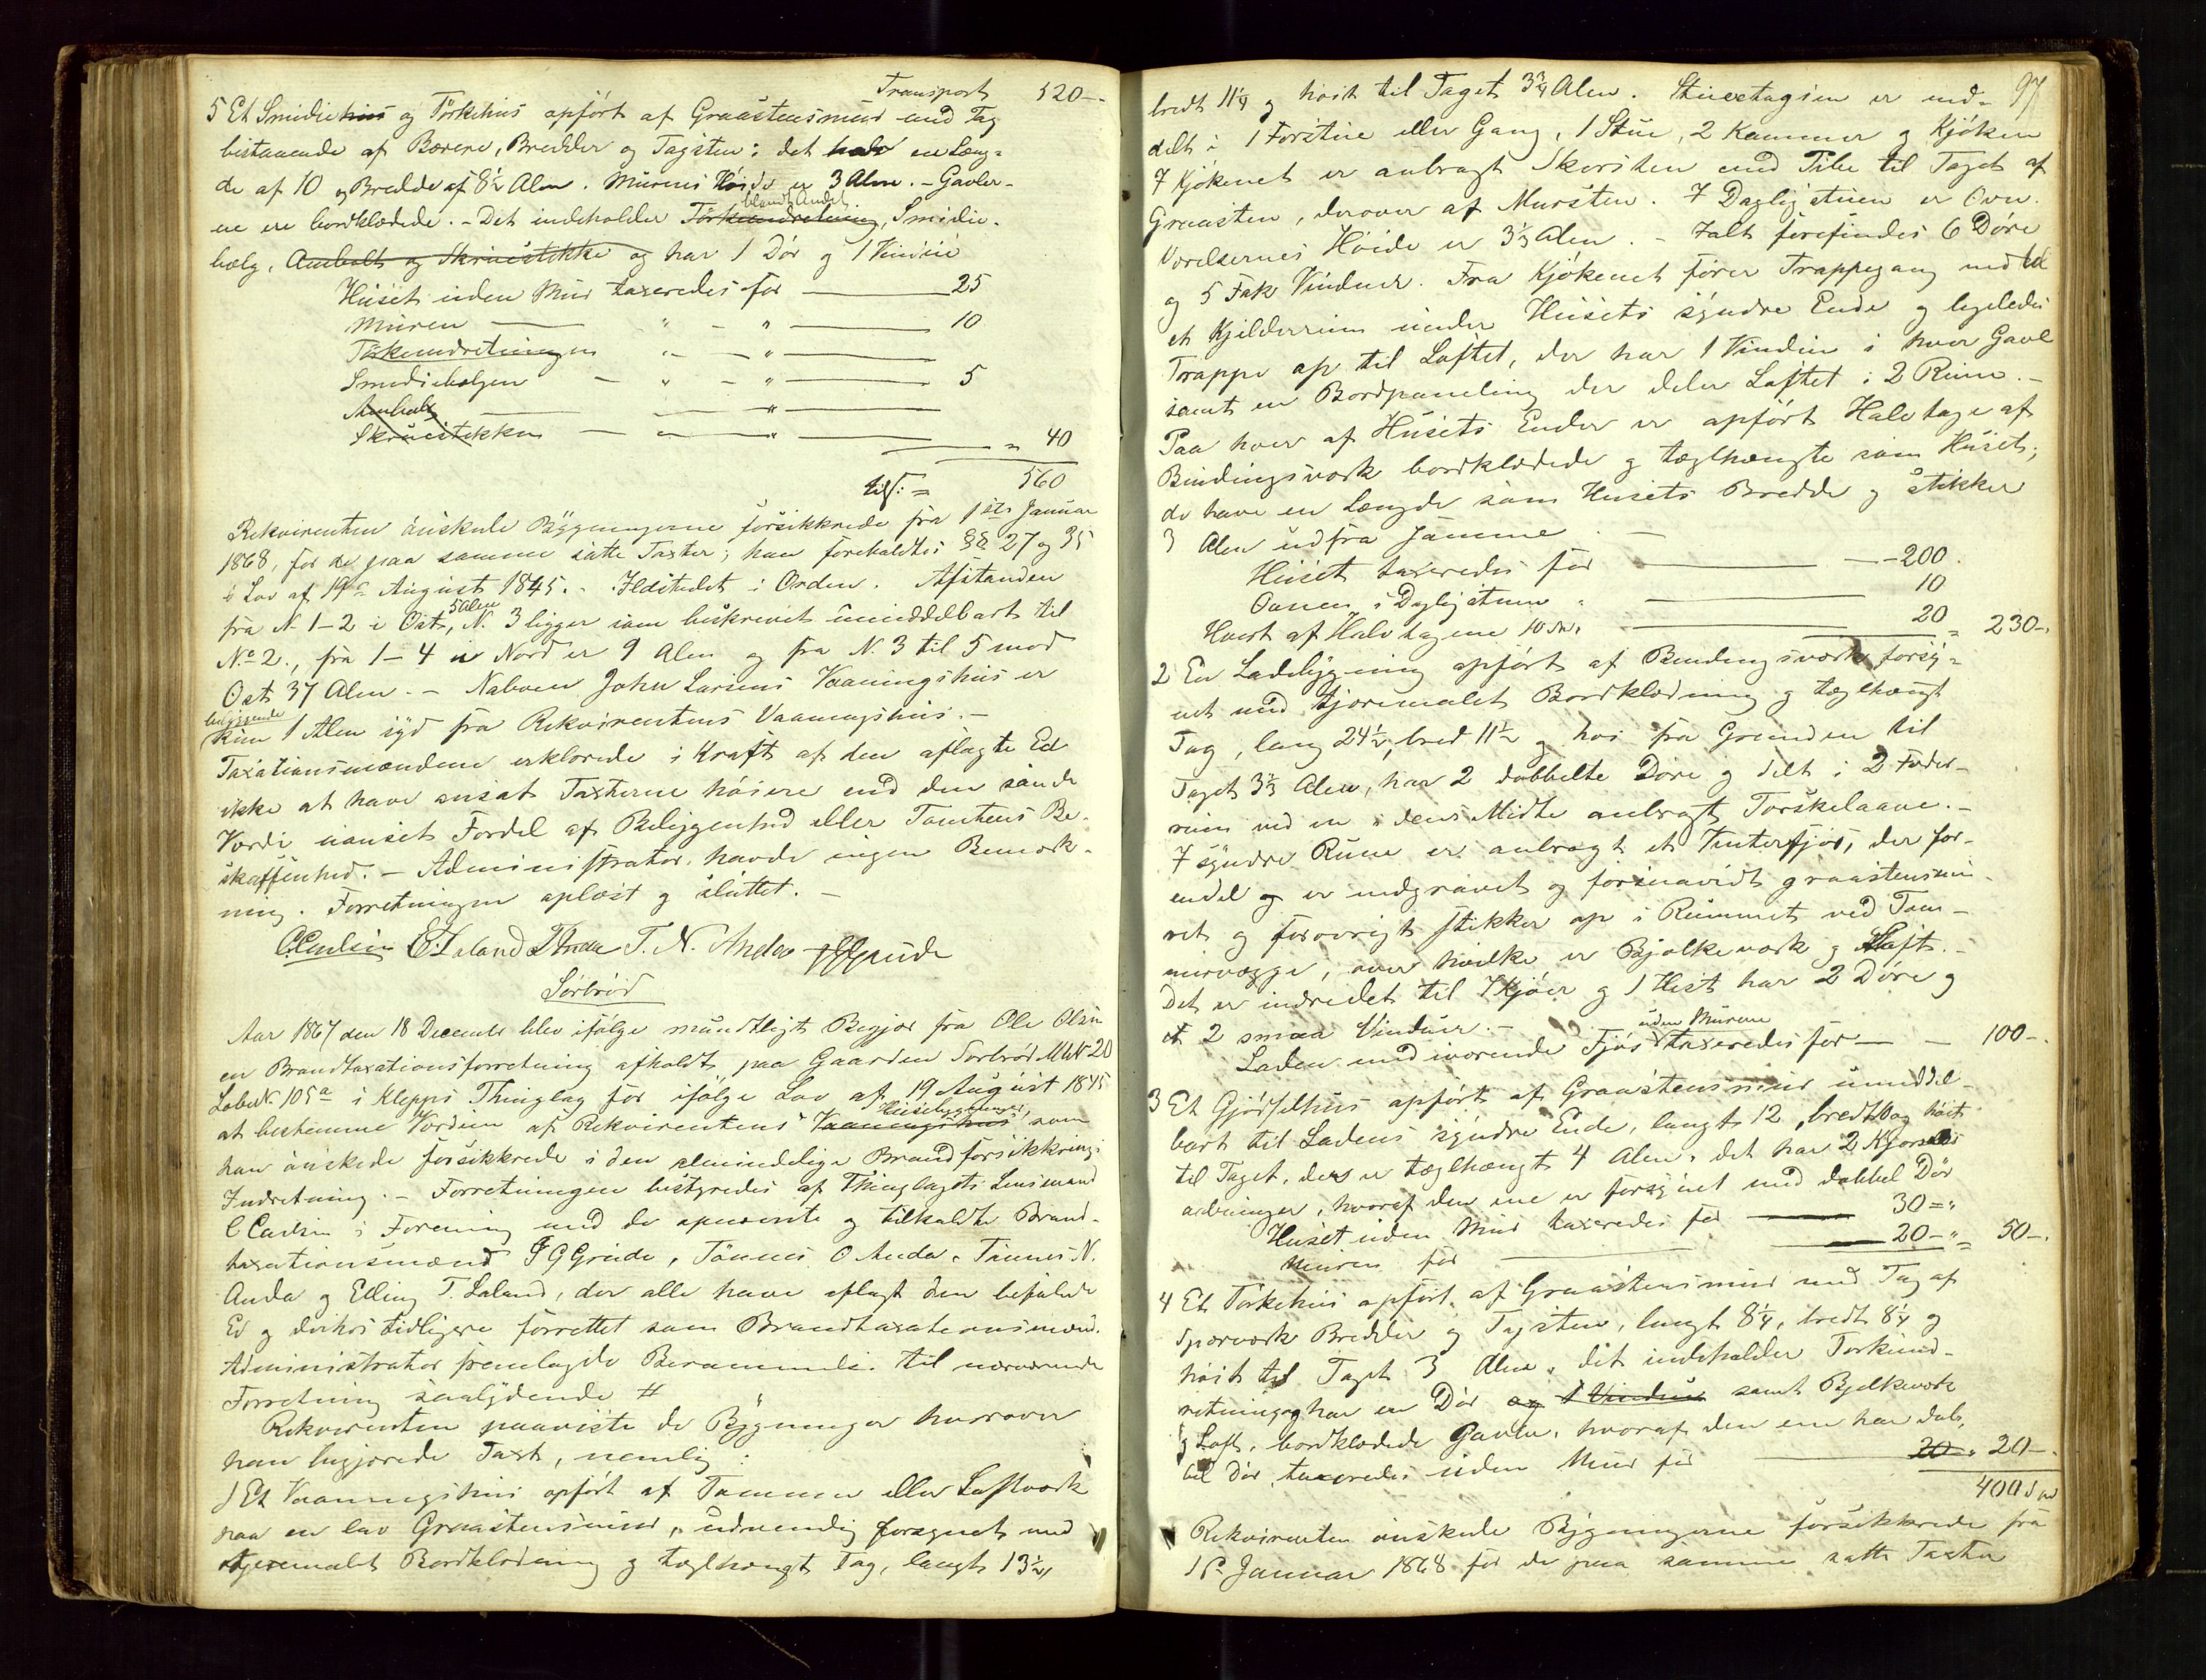 Transport 520-
5 Et Smidiehus og Törkehus opfört af Graastensmur med Tag
bestaaende af Bærere, Bredder og Tagsten; det har en Læng-
de af 10 og Bredde af 8½ Alen. Murens Höide er 3 Alen. - Gavler-
ne ere bordklædede. - Det indeholder blandt Andet Törkeindretning, Smidie-
bælg, Ambolt og Skruestikke og har 1 Dör og 1 Vindue
Huset uden Mur taxeredes for 25
Muren " - " 10
Törkeindretningen " - "
Smediebælgen - " - " 5
Ambolt - "
Skruestikken - - " = 40
tils: = 560
Rekvirenten önskede Bÿgningerne forsikkrede fra 1ste Januar
1868, for de paa samme satte Taxter; han foreholdtes §§ 27 og 35
i Lov af 19de August 1845. - Ildstedet i Orden. Afstanden
fra N. 1-2 i Ost 5 Alen, N. 3 ligger som beskrevet umiddelbart til
No 2., fra 1-4 i Nord er 9 Alen og fra N. 3 til 5 mod
Ost 37 Alen. - Naboen John Larsens Vaaningshus er
beliggende
kun 1 Alen syd fra Rekvirentens Vaaningshus. -
Taxationsmændene erklærede i Kraft af den aflagte Ed
ikke at have ansat Taxterne höiere end den sande
Værdi uanset Fordel af Beliggenhed eller Tomtens Be-
skaffenhed. - Administrator havde ingen Bemærk-
ning. Forretningen oplæst og sluttet. -
C. Carlsen E. T. Laland T. Anda T. N. Anda J G Grude
Sörbröd
Aar 1867 den 18 December blev ifölge mündtligt Begjær fra Ole Olsen
en Brandtaxationsforretning afholdt paa Gaarden Sorbröd MNo 20
LöbeN. 105a i Klepps Thinglag for ifölge Lov af 19 August 1845
at bestemme Værdien af Rekvirentens Vaaningshus Huusebygninger, som
han önskede forsikkrede i den almindelige Brandforsikkrings
Indretning. - Forretningen bestyredes af Thinglagets Lensmand
C Carlsen i Forening med de opnævnte og tilkaldte Brand-
taxationsmænd J G Grude, Tönnes O Anda, Tönnes N.
Anda og Elling T. Laland, der alle have aflagt den befalede
Ed og derhos tidligere forrettet som Brandtaxationsmænd.
Administrator fremlagde Berammelse til nærværende
Forretning saalydende #
Rekvirenten paaviste de Bÿgninger hvorover
han begjærede Taxt, nemlig:
1 Et Vaaningshus opfört af Tømmer eller Loftværk
paa en lav Graastensmuur, udvendig forsynet med
tjæremalet Bordklædning og tæglhængt Tag, langt 13½,
97
bredt 11¼ og höit til Taget 3¾ Alen. Stueetagien er ind-
delt i 1 Forstue eller Gang, 1 Stue, 2 Kammer og Kjöken
I Kjökenet er anbragt Skorsten med Pibe til Taget af
Graasten, derover af Mursten. I Dagligstuen er Ovn.
Værelsernes Höide er 3⅓ Alen. - Ialt forefindes 6 Döre
og 5 Fak Vinduer. Fra Kjökenet förer Trappegang ned til
et Kjelderrum under Husets sÿndre Ende og ligeledes
Trappe op til Loftet, der har 1 Vindue i hver Gavl
samt en Bordpaneling der deler Loftet i 2 Rum. -
Paa hver af Husets Ender er opfört Halvtage af
Bindingsværk bordklædede og tæglhængte som Huset;
de have en Længde som Husets Bredde og stikker
3 Alen ud fra Samme. -
Huset taxeredes for - 200.
Ovnen i Dagligstuen " 10
Hvert af Halvtagene 10 " 20 = 230-.
2 En Ladebÿgning opfört af Bindingsværk forsÿ-
net med tjæremalet Bordklædning og tæglhængt
Tag, lang 24½, bred 11½ og höi fra Grunden til
Taget 3⅓ Alen, har 2 dobbelte Döre og delt i 2 Foder-
rum ved en i dens Midte anbragt Torskelaave. -
I sÿndre Rum er anbragt et Vinterfjøs, der for-
endel og er nedgravet og forsaavidt graastensmu-
ret og forøvrigt stikker op i Rummet ved Tøm-
mervægge, over hvilke er Bjælkeværk og Loft. -
Det er indredet til 7 Kjöer og 1 Hest har 2 Döre og
2 smaa Vinduer. -
Laden med iværende Fjös uden Murene taxeredes for - 100-.
3 Et Gjödselhus opfört af Graastensmur umiddel-
bart til Ladens sÿndre Ende, langt 12, bredt og höit
til Taget, der er tæglhængt 4 Alen. det har 2 Kjørsels
aabninger, hvoraf den ene er forsynet med dobbel Dör
Huset uden Mur taxeredes for 30 = "
Muren for 20 - " = 50-.
4 Et Törkehus opfört af Graastensmur med Tag af
Sperværk Bredder og Tagsten, langt 8¼, bredt 8¼ og
höit til Taget 3 Alen. det indeholder Torkeind-
retning og har en Dör og 1 Vindue samt Bjelkeværk
og Loft. bordklædede Gavle, hvoraf den ene har dob-
bel Dör, taxeredes uden Mur for 20 " 20-.
400 Spd
Rekvirenten önskede Bÿgningerne forsikkrede fra
1ste Januar 1868 for de paa samme satte Taxter